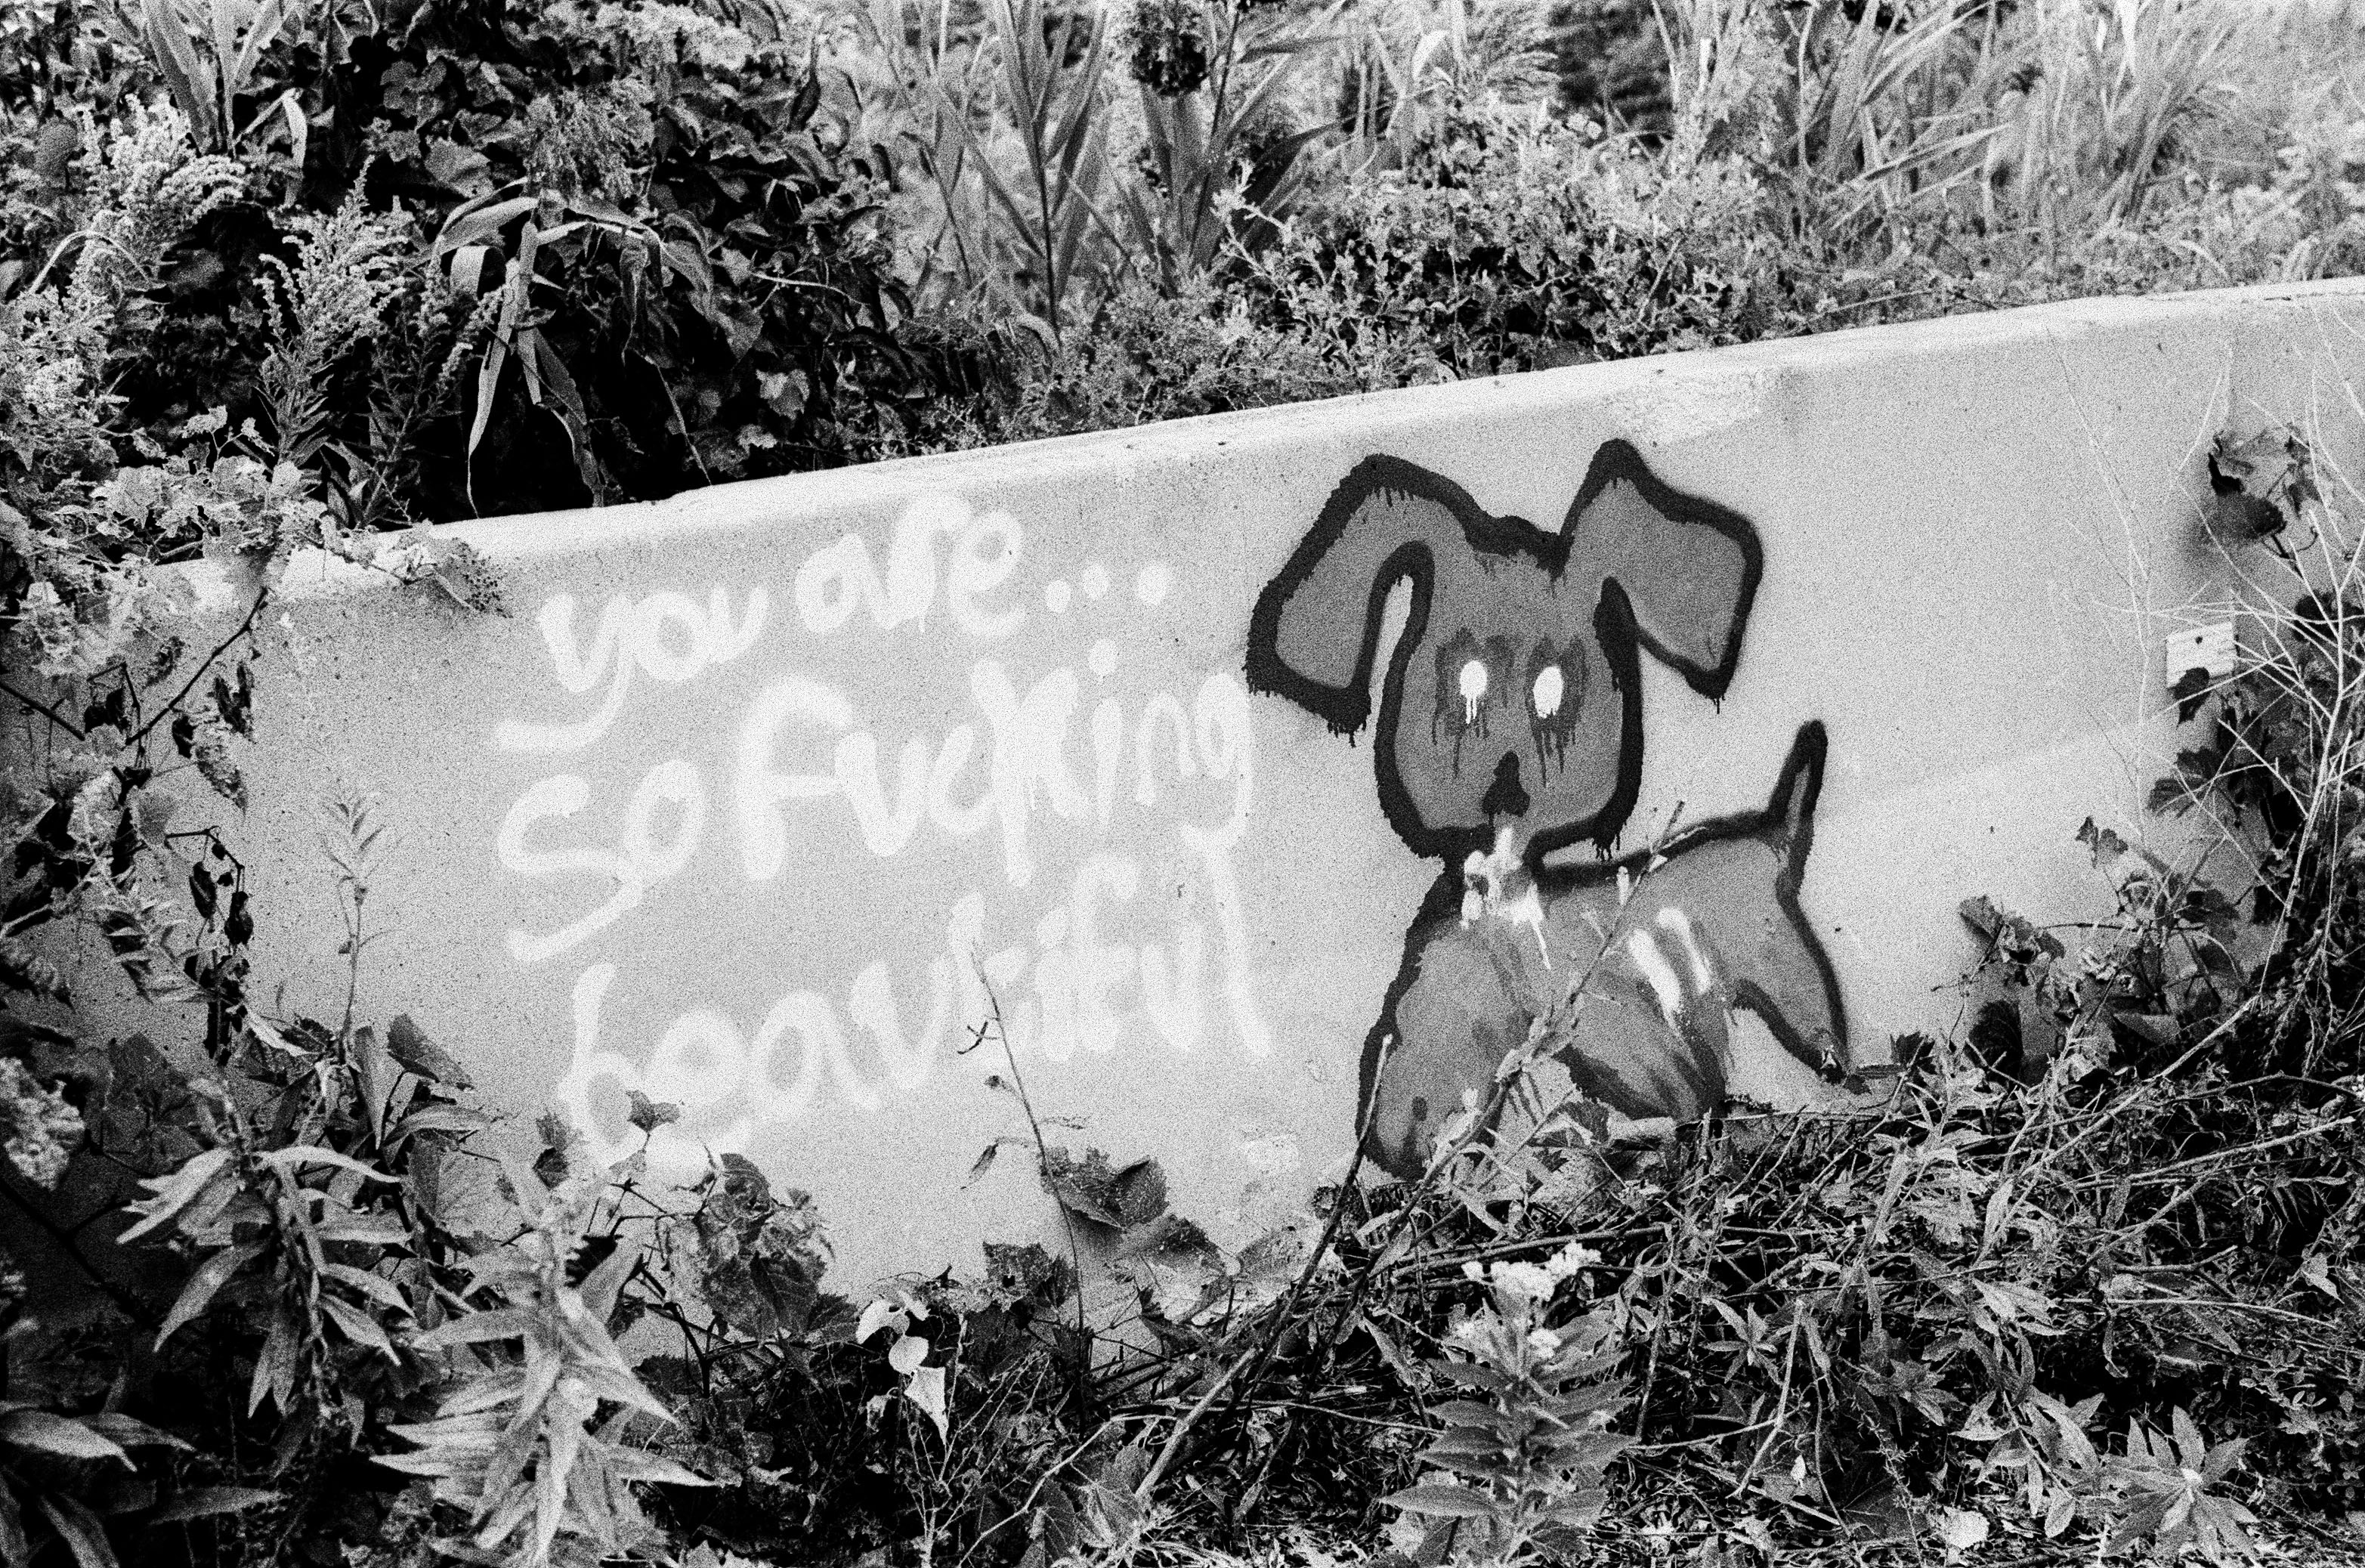 you are...
so fucking
beautiful